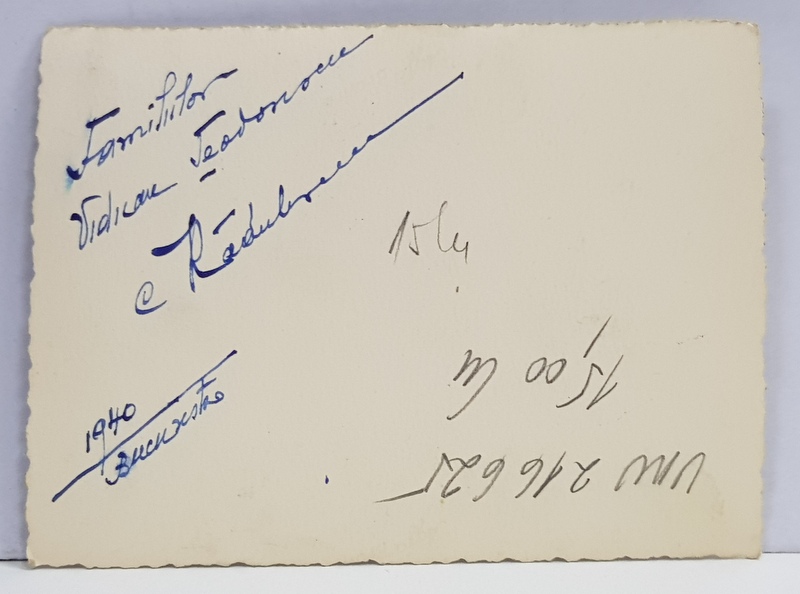 Familiilor
Vidican Teodorescu
C Rădulescu
1940
București
15 lei
1,500 lei
VNW 216625